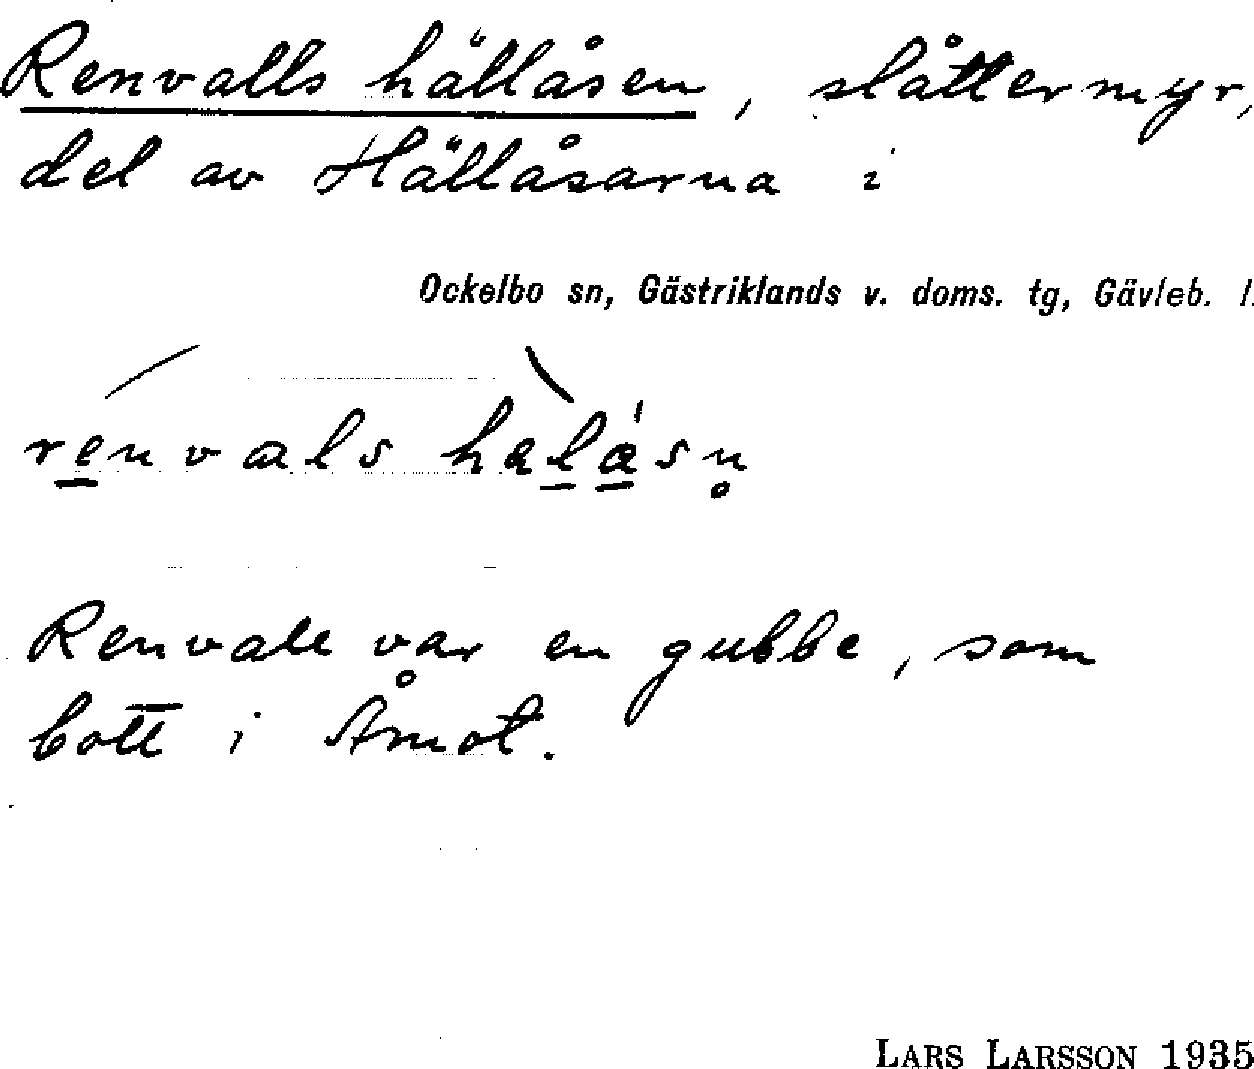 Renvalls hällåsen, slåttermyr,
del av Hällåsarna i
Ockelbo sn, Gästriklands v. doms. tg, Gävleb. l.
renvals
Renvall var en gubbe, som
bott i Åmot.
LARS LARSSON 1935